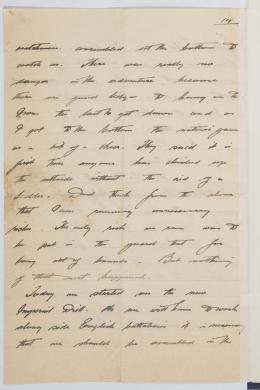 14
watchmen assembled at the bottom to
watch us. There was really no
danger in the adventure because
there are good ledges to hang on to
from the to get down and as
I got to the bottom the natives gave
us a bit of a cheer. They said it is
first time anyone has climbed up
the outside without the aid of a
ladder. Dont think from the above
that I am running unnecessary
risks. The only risk we ran was to
be put in the guard tent for
being out of bounds. But nothing
of that sort happened.
Today we started on the new
Imperial Drill. As we will have to work
along side English battalions it is necessary
that we should be assembled in the